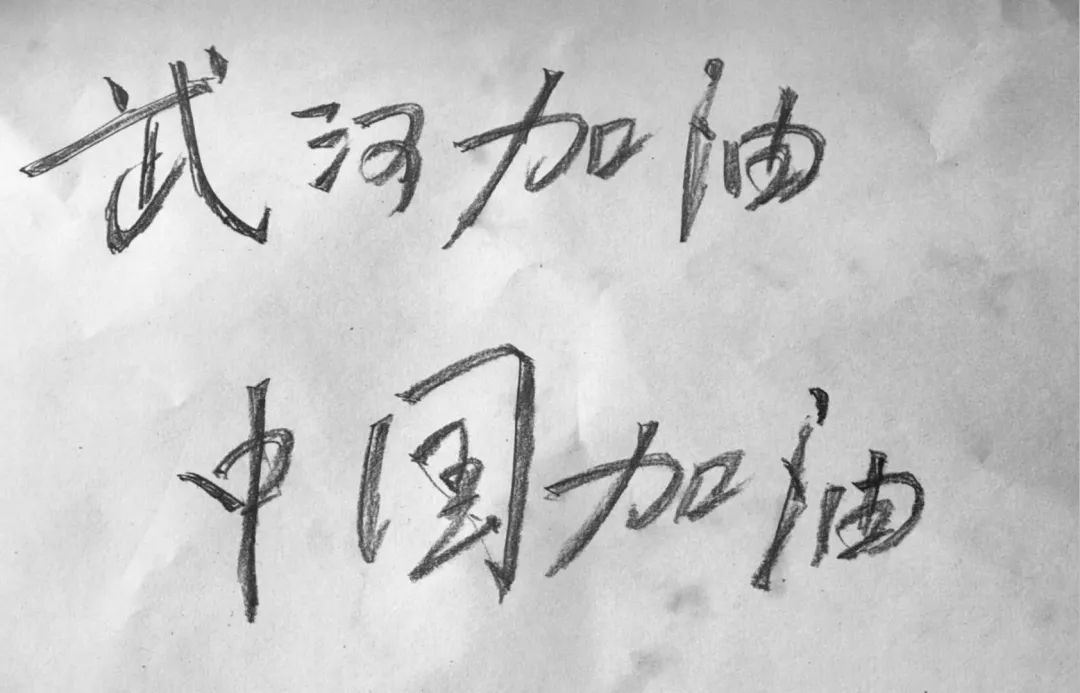 武汉加油
中国加油